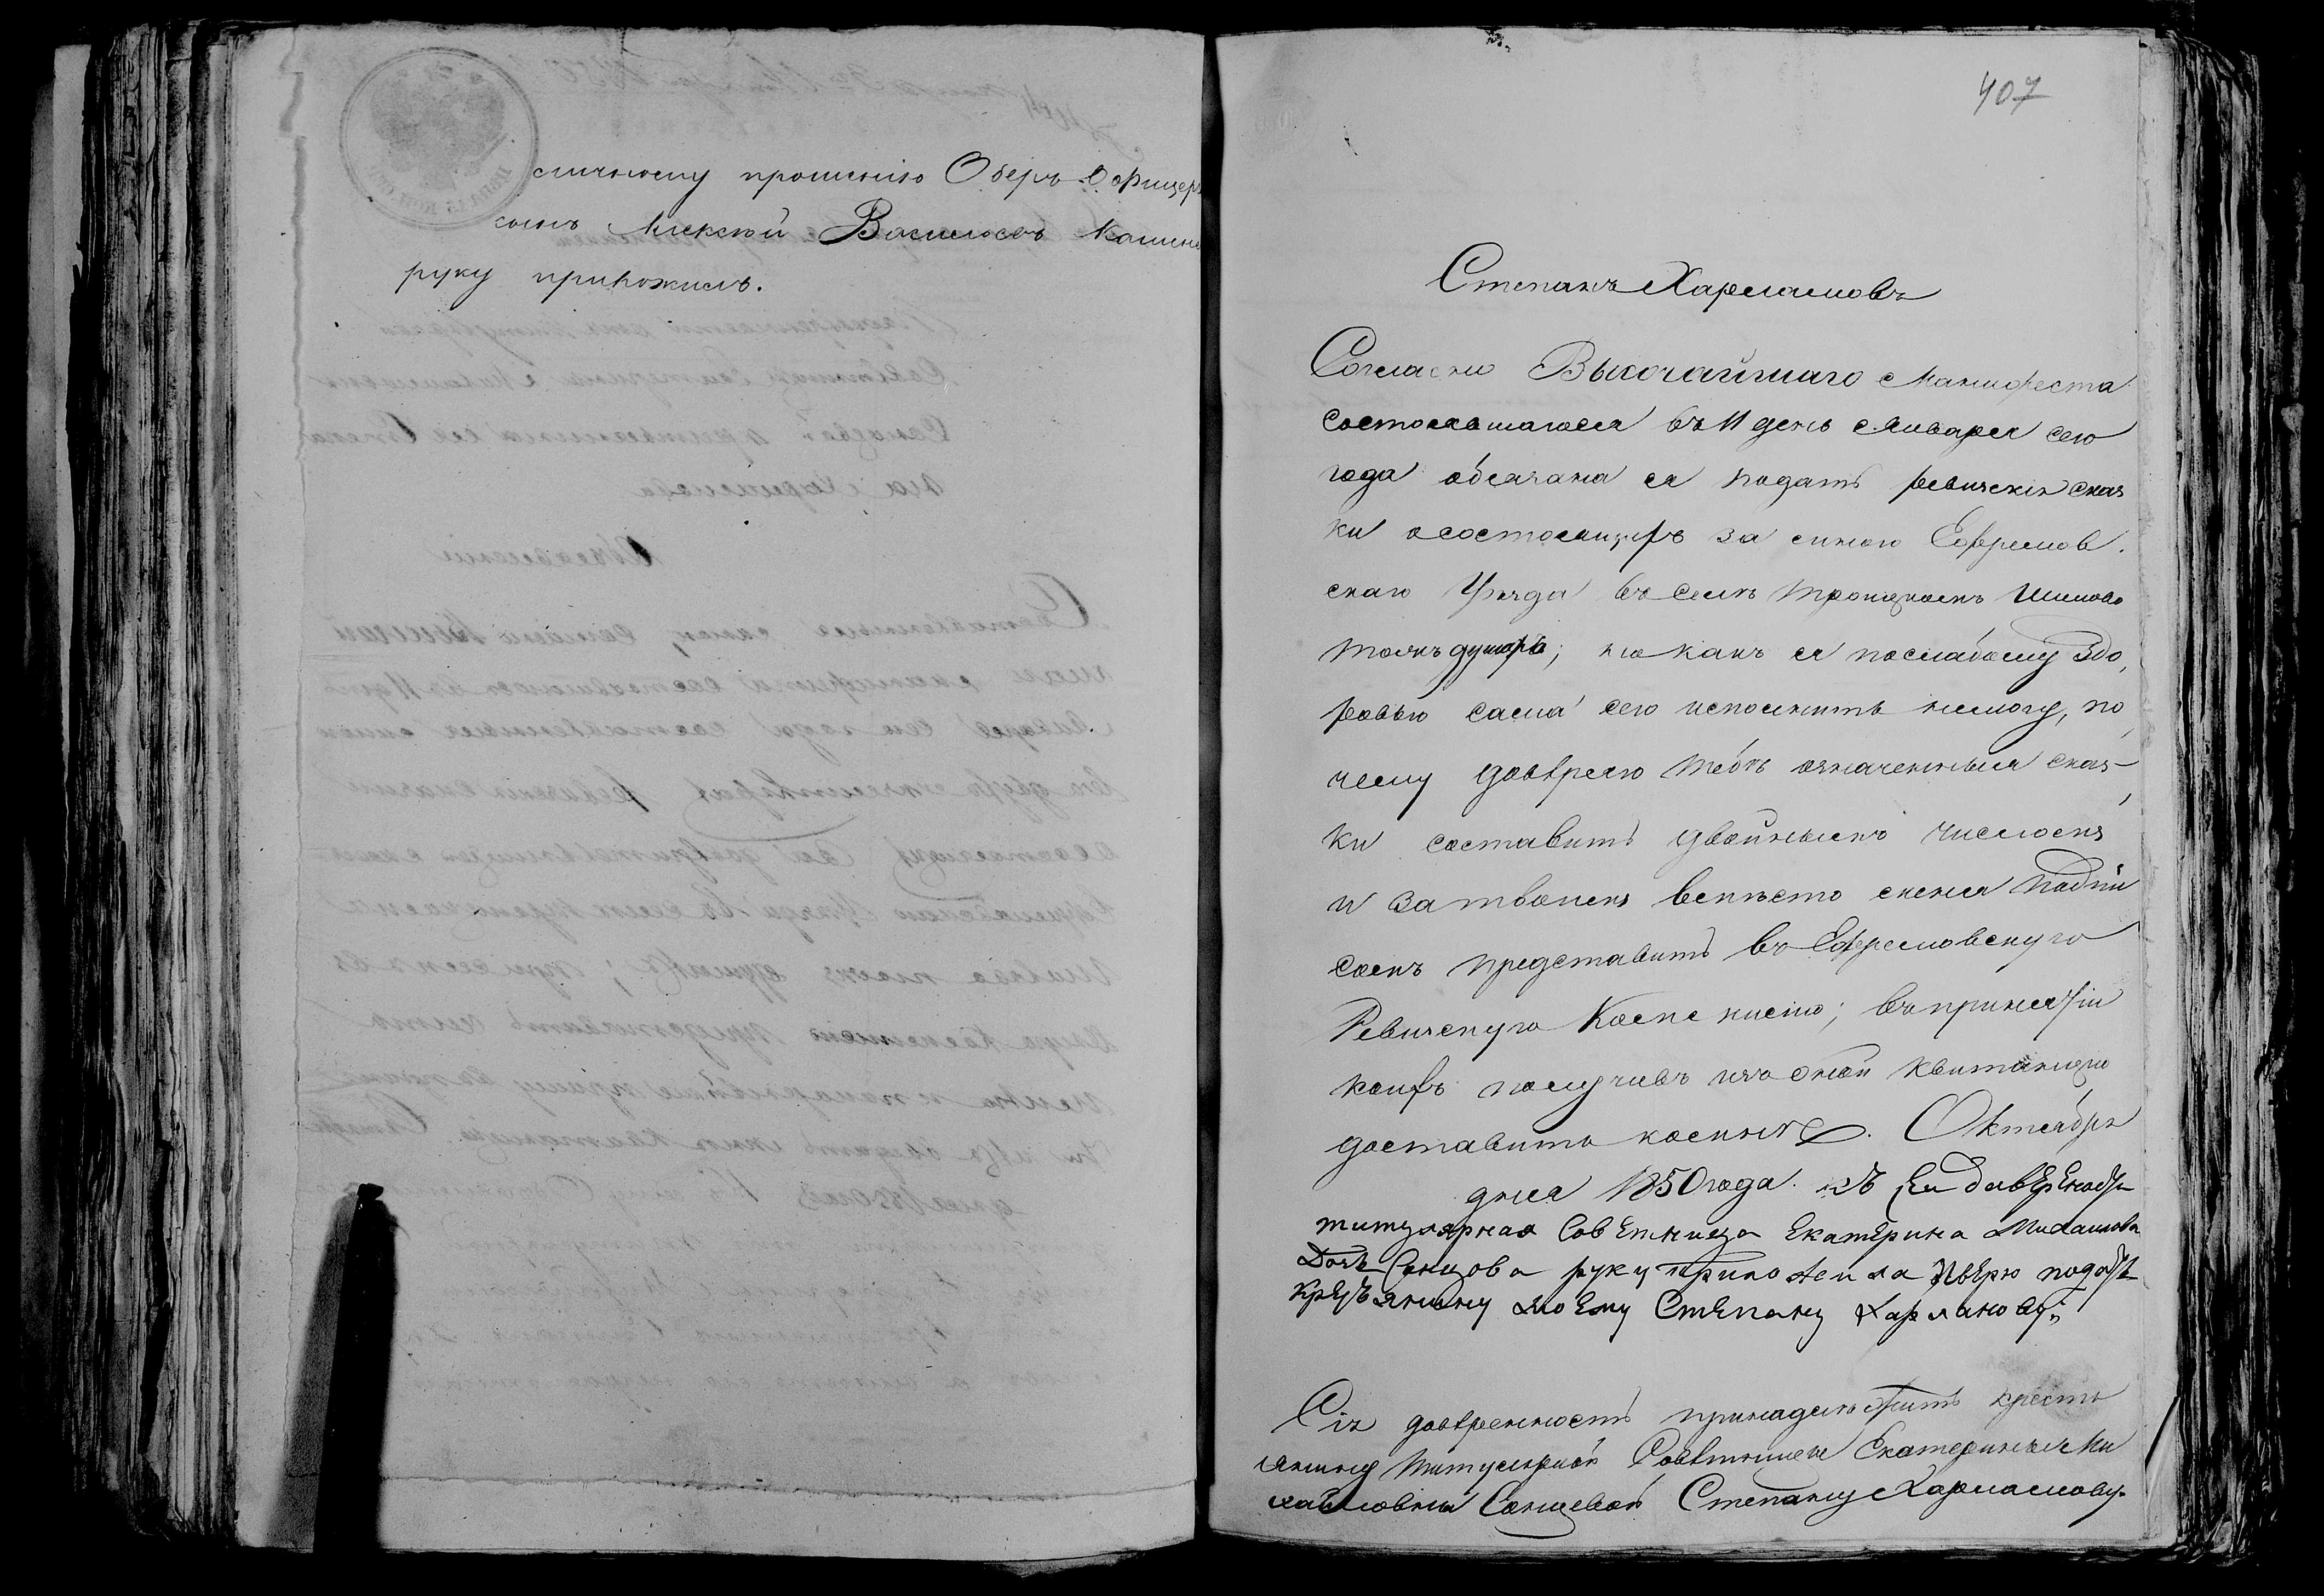 сличному прошенію Оберъ Офицеръ
сынъ Алексѣй Васильевъ
руку приложилъ.
407
Степанъ Харламовъ
Согласно Высочайшаго Манифеста
состоявшагося въ 11 день Января сего
года обязана я подать ревизскія сказ
ки о состоящихъ за мною Ефремов.
скаго Уѣзда въ селѣ Троицкомъ Шилово
тожъ душахъ; но какъ я послабому Здо,
ровью сама сего исполнить немогу, по,
чему довѣряю тебѣ означенныя сказ-
ки составить двойнымъ числомъ
и за твоимъ вмѣсто меня подпи
сомъ представить въ Ефремовскую
Ревизскую Комисию; въ принятіи
коихъ получивъ изъ оной квитанцію
доставить комнѣ. Октября
дня 1850 года. къ сей давѣрености
титулярная Совѣтница Екатерина Михаилова
Дочь Сонцова руку приложила ивѣрю подать
крестьянину моему Степану Харламову;
Сія довѣренность принадлежитъ кресть
янину Титулярной Совѣтницы Екатерины Ми
хайловны Сонцевой Степану Харламову.